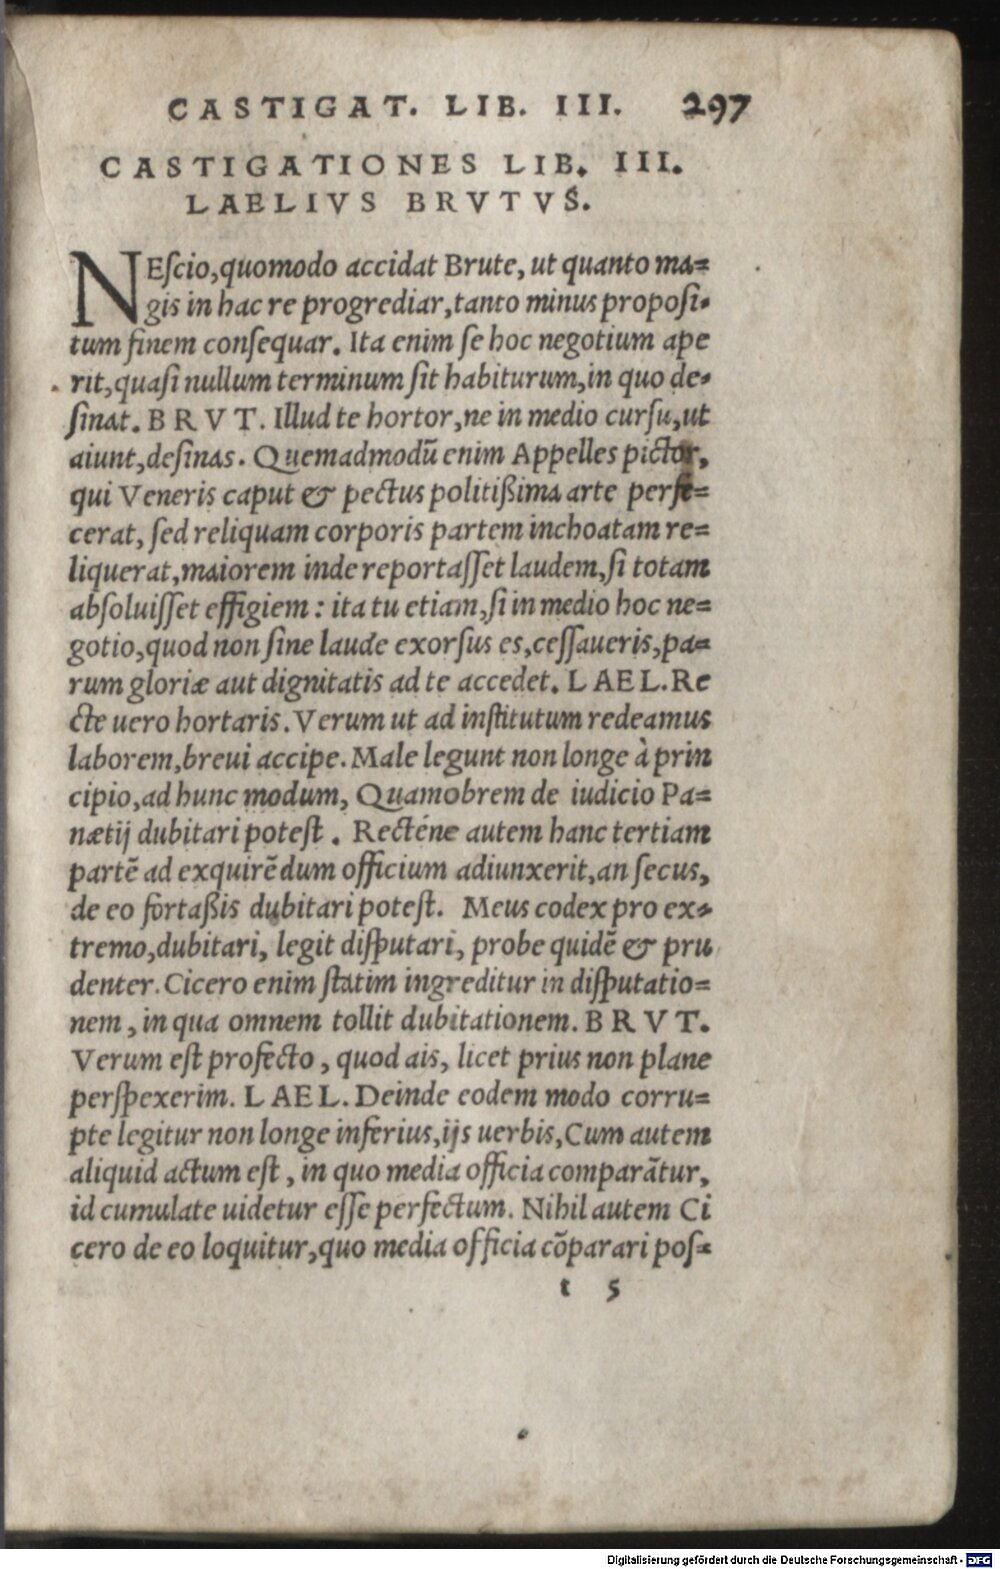 CASTIGAT. LIB. III. 297
CASTIGATIONES LIB. III.
LAELIVS BRVTVS.
NEſcio,quomodo accidat Brute, ut quanto ma=
gis in hac re progrediar,tanto minus propoſi=
tum finem conſequar. Ita enim ſe hoc negotium ape
rit,quaſi nullum terminum ſit habiturum,in quo de=
ſinat. BRVT. Illud te hortor,ne in medio curſu,ut
aiunt,deſinas. Quemadmodū enim Appelles pictor,
qui Veneris caput & pectus politißima arte perfe=
cerat, ſed reliquam corporis partem inchoatam re=
liquerat,maiorem inde reportaſſet laudem,ſi totam
abſoluiſſet effigiem: ita tu etiam,ſi in medio hoc ne=
gotio,quod non ſine laude exorſus es,ceſſaueris,pa=
rum gloriæ aut dignitatis ad te accedet. LAEL. Re
cte uero hortaris. Verum ut ad inſtitutum redeamus
laborem,breui accipe. Male legunt non longe à prin
cipio,ad hunc modum, Quamobrem de iudicio Pa=
nætij dubitari poteſt. Recténe autem hanc tertiam
partē ad exquirēdum officium adiunxerit,an ſecus,
de eo fortaßis dubitari poteſt. Meus codex pro ex=
tremo,dubitari, legit diſputari, probe quidē & pru
denter. Cicero enim ſtatim ingreditur in diſputatio=
nem, in qua omnem tollit dubitationem. BRVT.
Verum eſt profecto, quod ais, licet prius non plane
perſpexerim. LAEL. Deinde eodem modo corru=
pte legitur non longe inferius,ijs uerbis,Cum autem
aliquid actum eſt, in quo media officia comparātur,
id cumulate uidetur eſſe perfectum. Nihil autem Ci
cero de eo loquitur,quo media officia cōparari poſ=
t 5
Digitalisierung gefördert durch die Deutsche Forschungsgemeinschaft - DFG